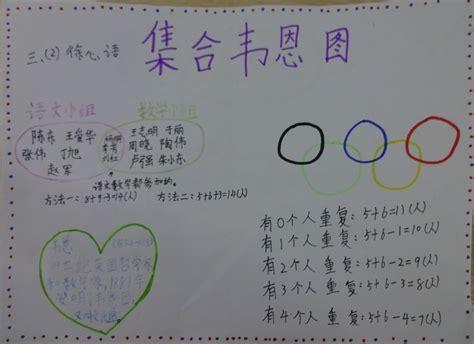 集合韦恩图
三、(2) 徐心语
语文小组
数学小组
陈东 王爱华
张伟 丁旭
赵军
杨明
李芳
刘红
王志明 于丽
周晓 陶伟
卢强 朱小东
语文数学都参加的。
方法一:8+9-3=14(人)
方法二:5+6+3=14(人)
有0个人重复:5+6=11(人)
有1个人重复:5+6-1=10(人)
有2个人重复:5+6-2=9(人)
有3个人重复:5+6-3=8(人)
有4个人重复:5+6-4=7(人)
英国哲学家
和数学家,1881年
发明